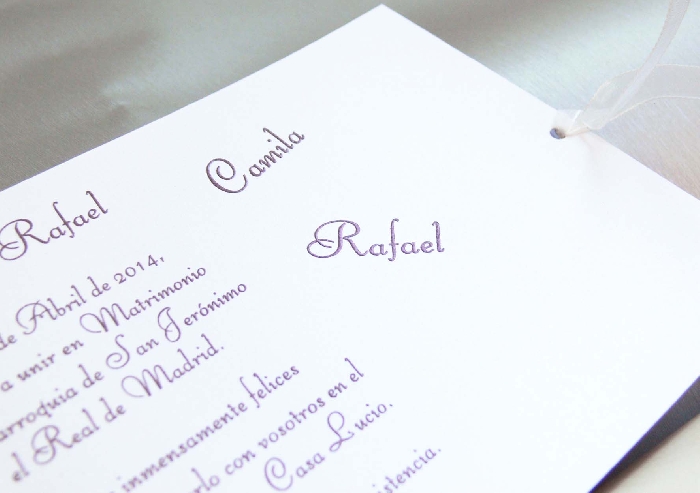 Rafael Camila
Rafael
de Abril de 2014,
a unir en Matrimonio
arroquia de San Jerónimo
el Real de Madrid.
inmensamente felices
rlo con vosotros en el
Casa Lucio.
istencia.